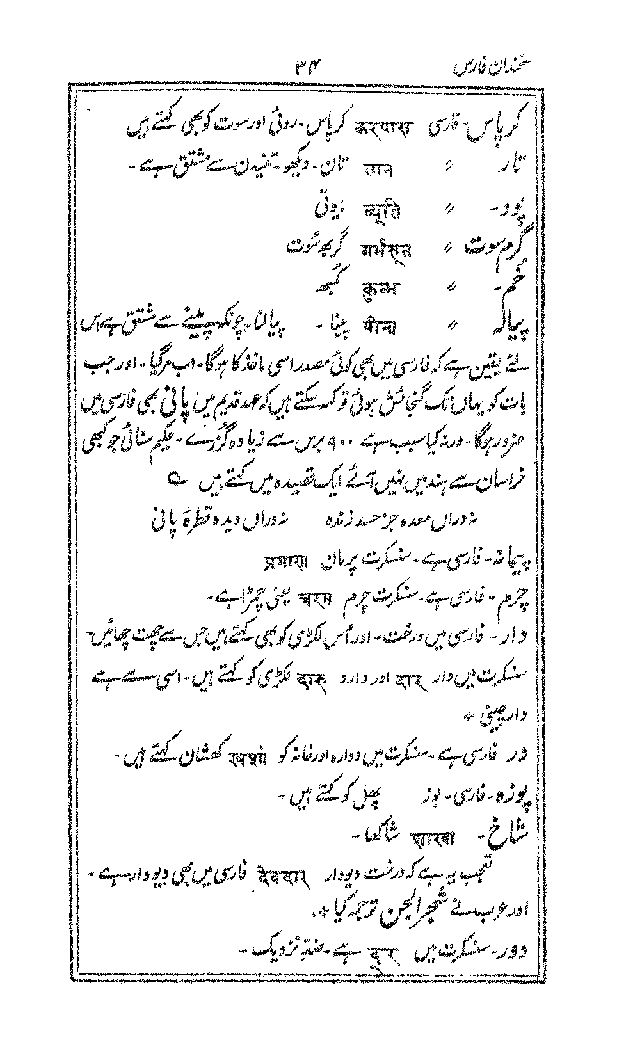 سخندان فارس ۳۴
کرپاس - فارسی करपास کرپاس - روئی اور سوت کو بھی کہتے ہیں
تار 〃 तान تان - دیکھو - تنیدن سے مشتق ہے -
پود - 〃 ब्यूति بیوتی
گرم سوت 〃 गर्भसूत گربھ سُوت
خُم - 〃 कुम्भ کمبھ
پیالہ 〃 पीना پینا - پیالنا، چونکہ پینے سے مشتق ہے اس
لئے یقین ہے کہ فارسی میں بھی کوئی مصدر اسی ماخذ کا ہوگا - اب مرگیا - اور جب
بات کو یہاں تک گنجائش ہوئی تو کہہ سکتے ہیں کہ عہد قدیم میں پانی بھی فارسی میں
ضرور ہوگا - ورنہ کیا سبب ہے ۹۰۰ برس سے زیادہ گزرے - حکیم سنائی جو کبھی
خراسان سے ہند میں نہیں آئے ایک قصیدہ میں کہتے ہیں
نہ دراں معدہ جز حسد زندہ نہ دراں دیدہ قطرۂ پانی
پیمانہ - فارسی ہے - سنسکرت پرمان प्रमाण
چرم - فارسی ہے - سنسکرت چرم चरम یعنی چمڑا ہے -
دار - فارسی میں درخت - اور اُس لکڑی کو بھی کہتے ہیں جس سے چھت چھائیں -
سنسکرت میں دار दार اور دارو दारू لکڑی کو کہتے ہیں - اسی سے ہے
دارچینی *
در فارسی ہے - سنسکرت میں دوارہ اور خانہ کو کھشان کہتے ہیں -
پوزہ - فارسی - پوز پھل کو کہتے ہیں -
شاخ - शाखा شاکھا -
تعجب یہ ہے کہ درخت دیودار देवदार فارسی میں بھی دیودار ہے -
اور عرب نے شجر الجن ترجمہ کیا *
دور - سنسکرت میں दूर ہے - ضد نزدیک -